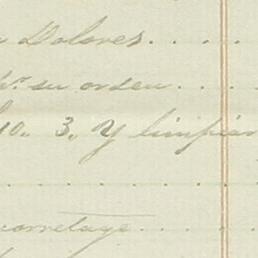 Dolores....
pr. su orden....
no. 3. y limpiar
corretage....